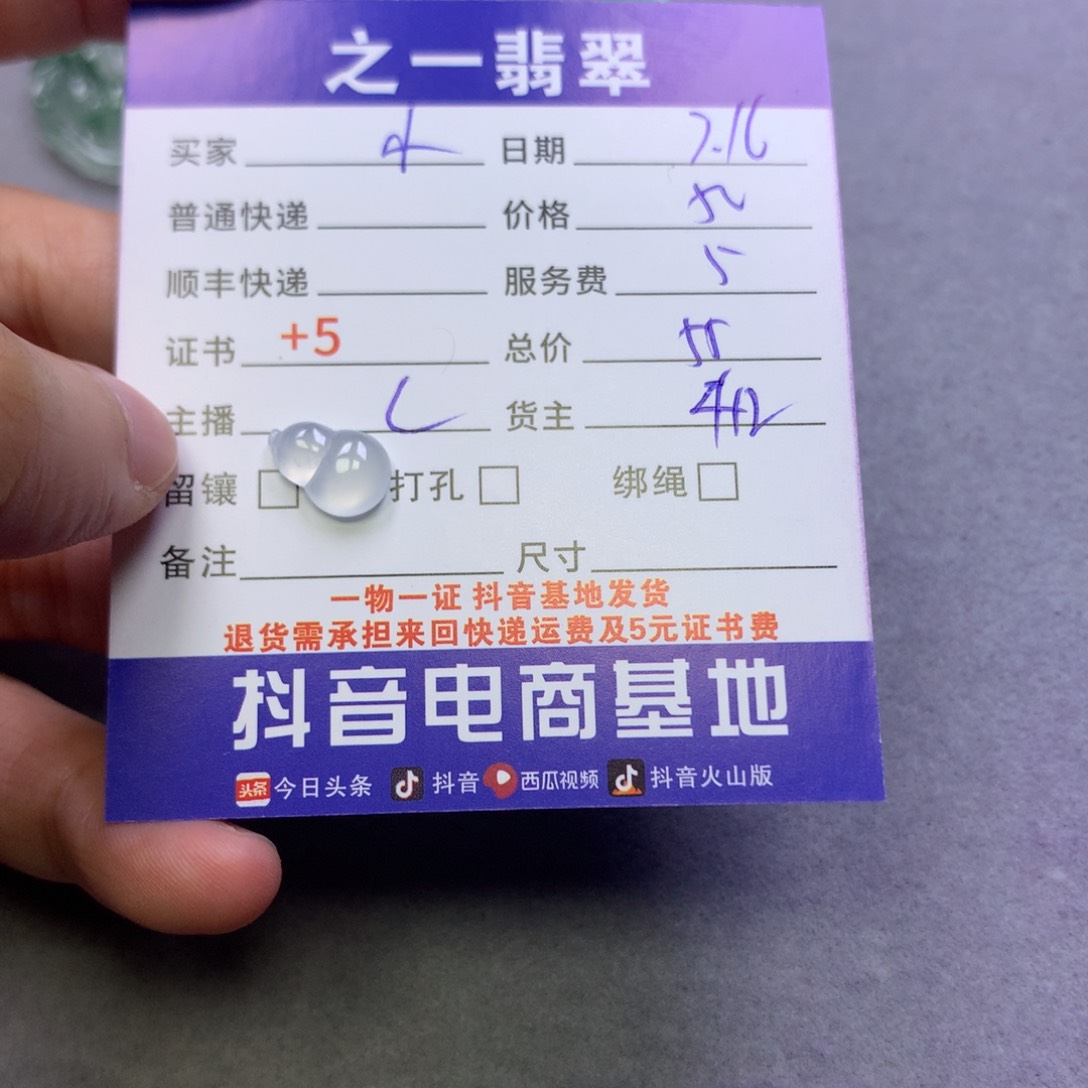 之一翡翠
买家 日期 7.16
普通快递 价格
顺丰快递 服务费 5
证书 +5 总价
主播 货主
留镶 打孔 绑绳
备注 尺寸
一物一证 抖音基地发货
退货需承担来回快递运费及5元证书费
抖音电商基地
头条 今日头条 抖音 西瓜视频 抖音火山版